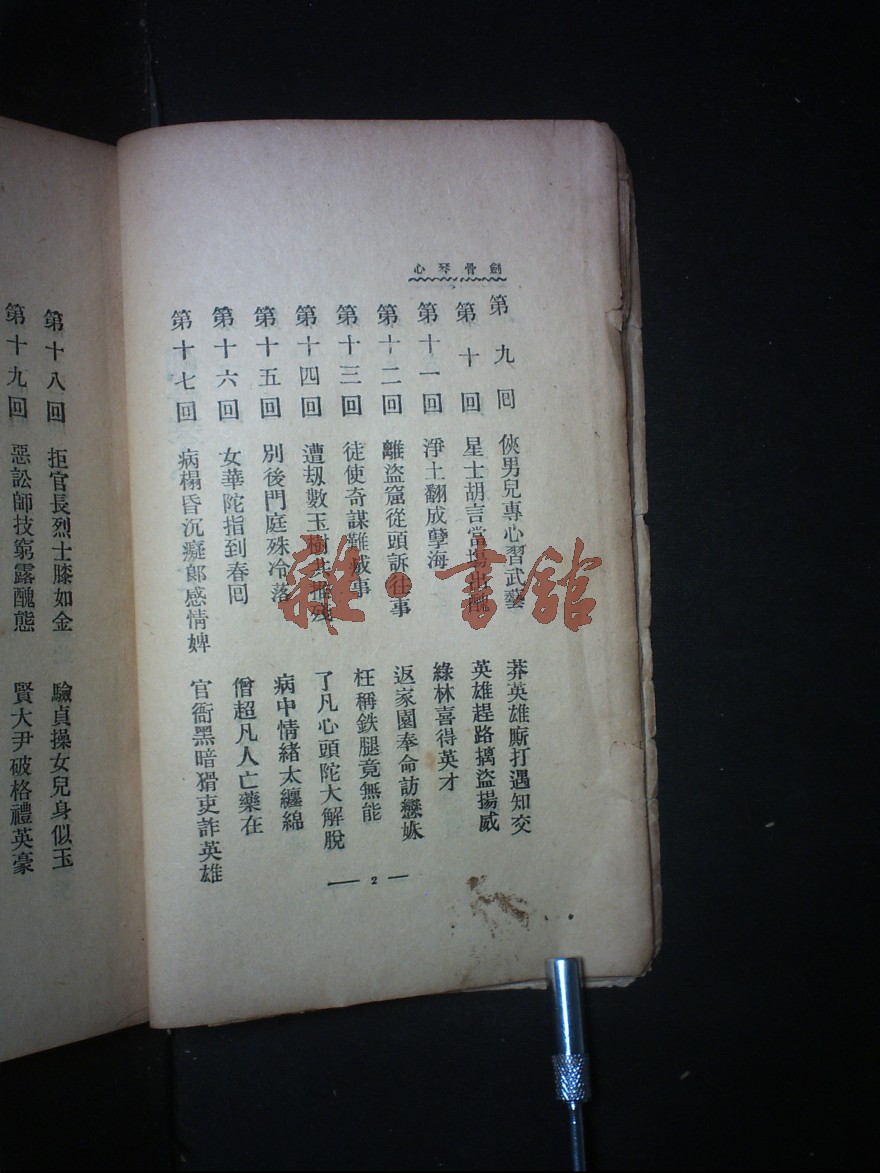 劍骨琴心
第九回 俠男兒專心習武藝 莽英雄廝打遇知交
第十回 星士胡言當場出醜 英雄趕路擒盜揚威
第十一回 淨土翻成孽海 綠林喜得英才
第十二回 離盜窟從頭訴往事 返家園奉命訪戀姝
第十三回 徒使奇謀難成事 枉稱鉄腿竟無能
第十四回 遭刼數玉樹共摧殘 了凡心頭陀大解脫
第十五回 別後門庭殊冷落 病中情緒太纏綿
第十六回 女華陀指到春囘 僧超凡人亡藥在
第十七回 病榻昏沉癡郞感情婢 官衙黑暗猾吏詐英雄
2
第十八回 拒官長烈士膝如金 驗貞操女兒身似玉
第十九回 惡訟師技窮露醜態 賢大尹破格禮英豪
雜·書館